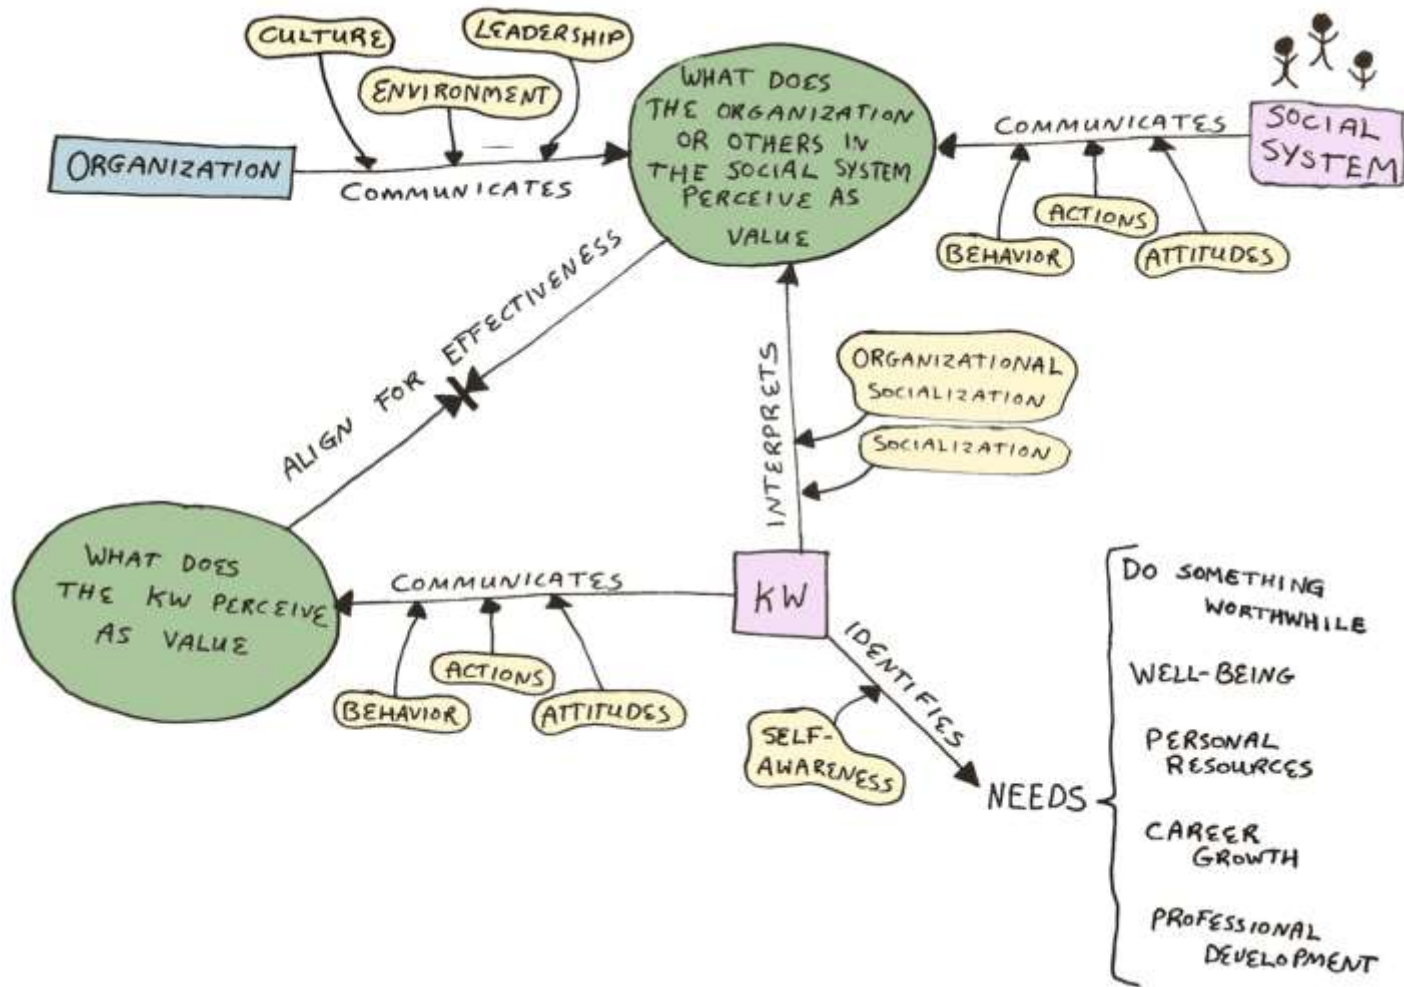 CULTURE
LEADERSHIP
ENVIRONMENT
ORGANIZATION
COMMUNICATES
WHAT DOES
THE ORGANIZATION
OR OTHERS IN
THE SOCIAL SYSTEM
PERCEIVE AS
VALUE
COMMUNICATES
SOCIAL
SYSTEM
BEHAVIOR
ACTIONS
ATTITUDES
ALIGN FOR EFFECTIVENESS
INTERPRETS
ORGANIZATIONAL
SOCIALIZATION
SOCIALIZATION
WHAT DOES
THE KW PERCEIVE
AS VALUE
COMMUNICATES
BEHAVIOR
ACTIONS
ATTITUDES
KW
IDENTIFIES
SELF-
AWARENESS
NEEDS
DO SOMETHING
WORTHWHILE
WELL-BEING
PERSONAL
RESOURCES
CAREER
GROWTH
PROFESSIONAL
DEVELOPMENT